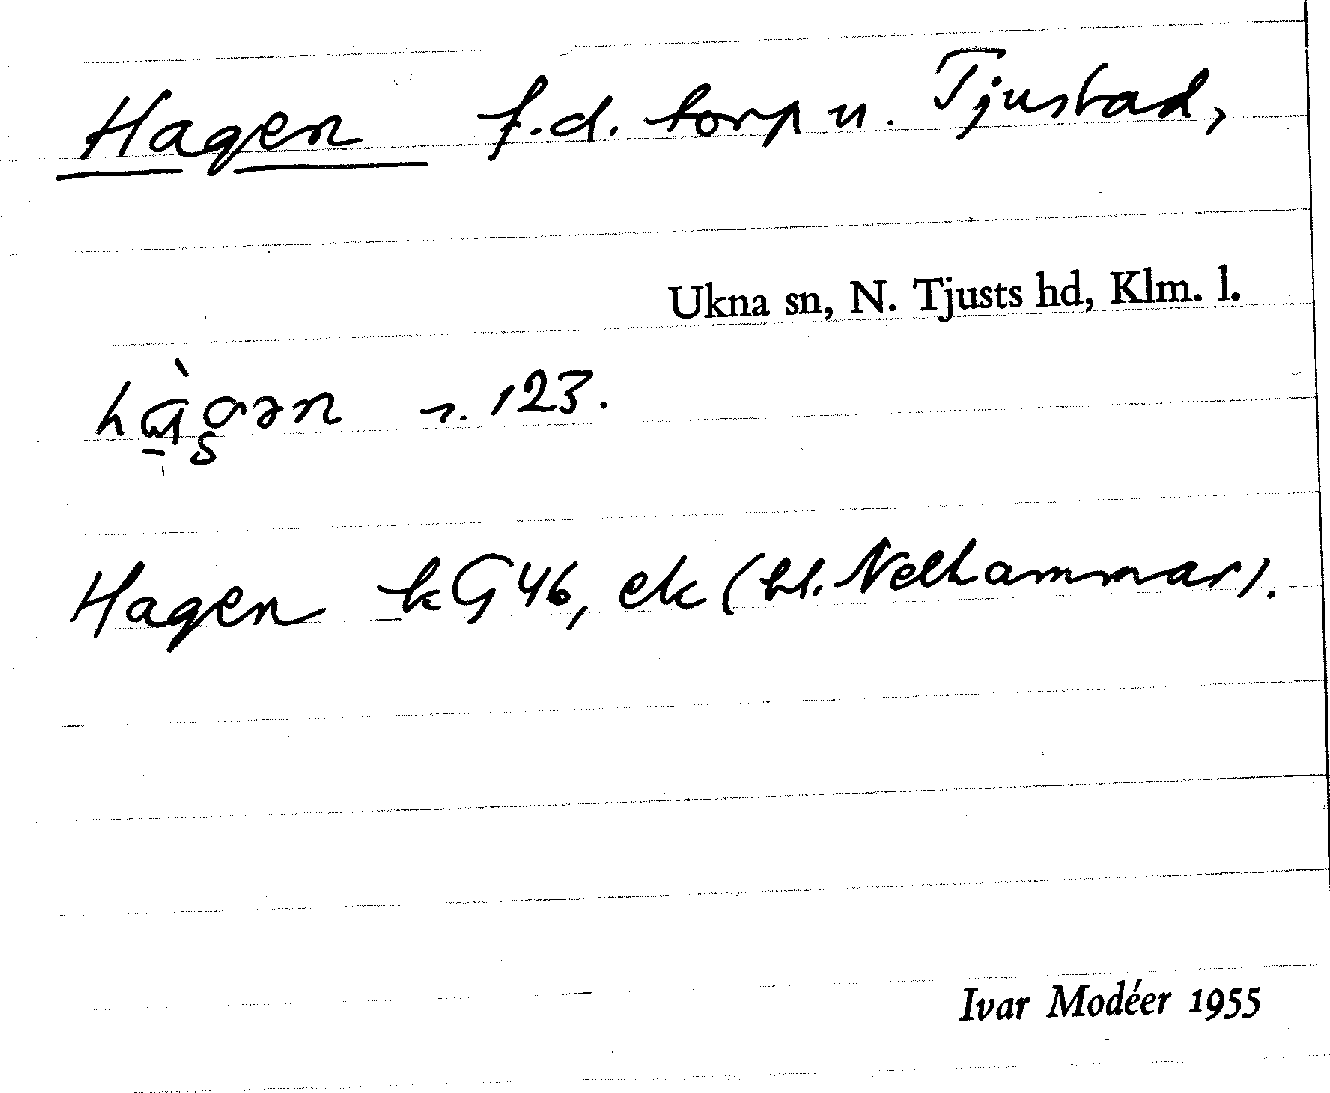 Hagen f.d. torp u. Tjustad,
Ukna sn, N. Tjusts hd, Klm. l.
123.
Hagen kG 46, ek (bl. Nelhammar).
Ivar Modéer 1955